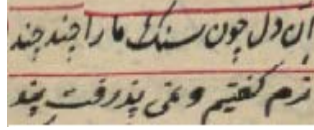 آن دل چون سنک ما را چند چند
نرم کفتیم و نمی پذرفت پند